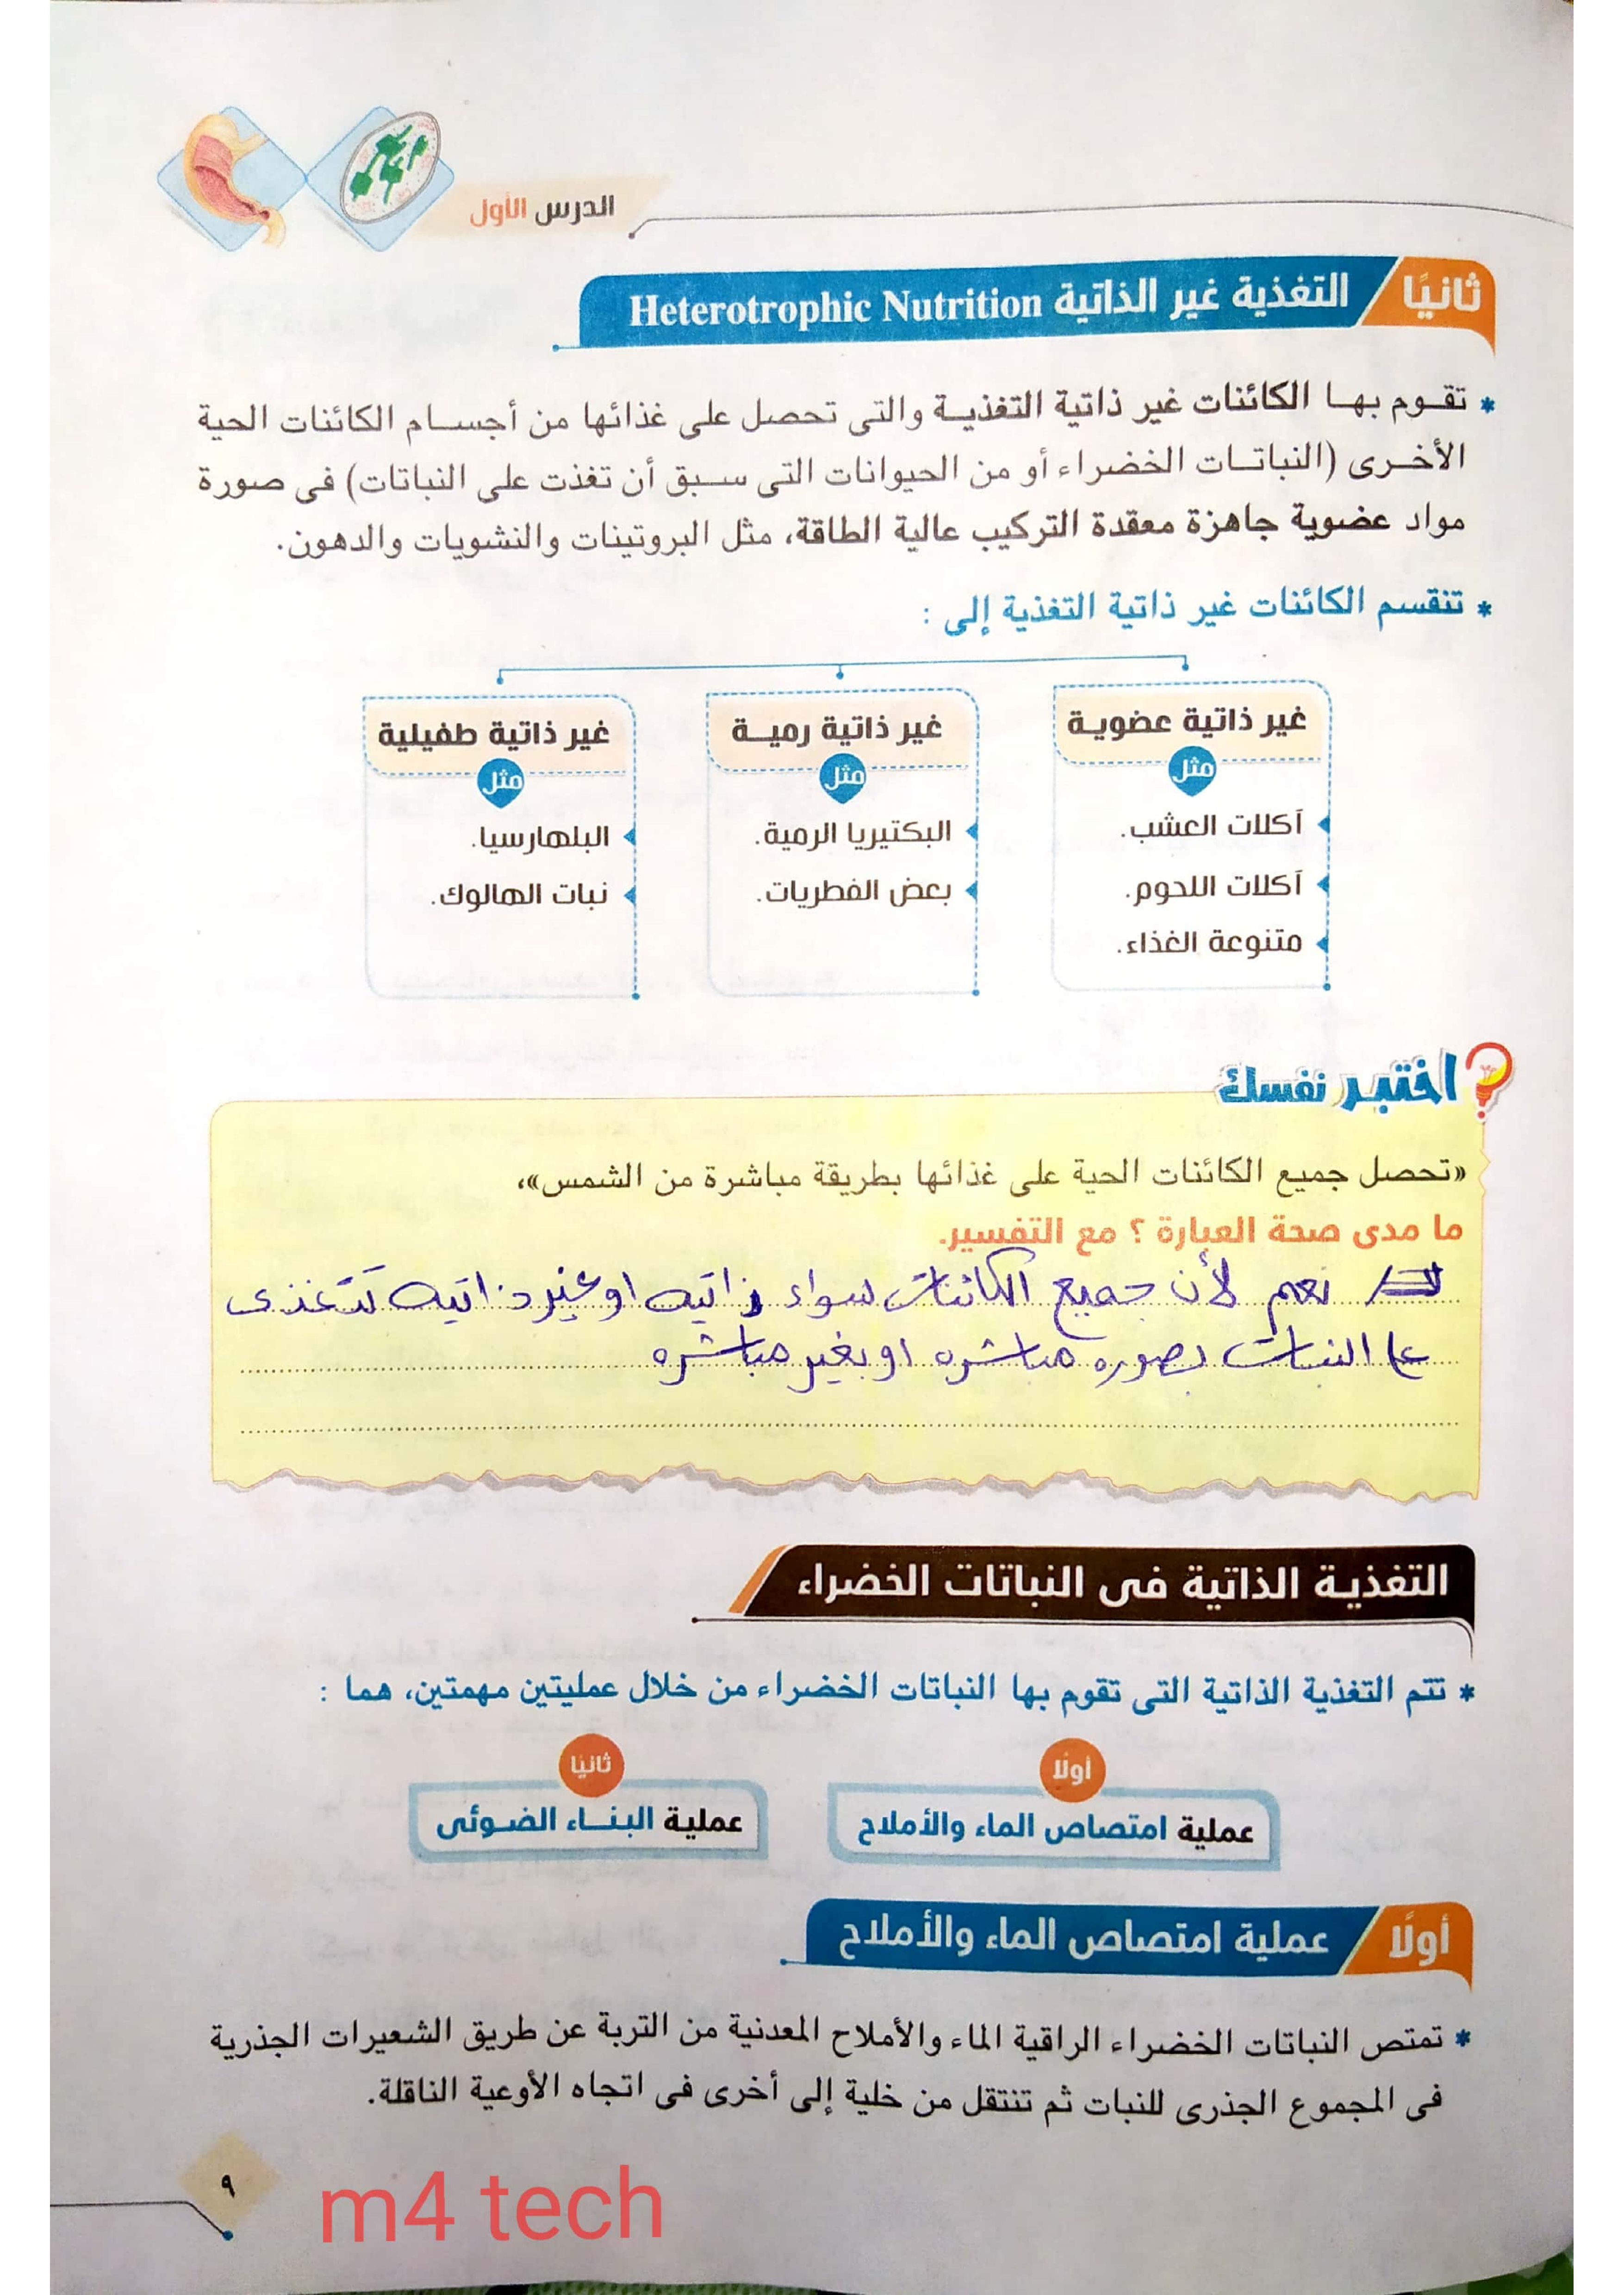 الدرس الأول
ثانيًا التغذية غير الذاتية Heterotrophic Nutrition
* تقوم بها الكائنات غير ذاتية التغذية والتى تحصل على غذائها من أجسام الكائنات الحية
الأخرى (النباتات الخضراء أو من الحيوانات التى سبق أن تغذت على النباتات) فى صورة
مواد عضوية جاهزة معقدة التركيب عالية الطاقة، مثل البروتينات والنشويات والدهون.
* تنقسم الكائنات غير ذاتية التغذية إلى :
غير ذاتية عضوية
مثل
آكلات العشب.
آكلات اللحوم.
متنوعة الغذاء.
غير ذاتية رمية
مثل
البكتيريا الرمية.
بعض الفطريات.
غير ذاتية طفيلية
مثل
البلهارسيا.
نبات الهالوك.
اختبر نفسك
«تحصل جميع الكائنات الحية على غذائها بطريقة مباشرة من الشمس»،
ما مدى صحة العبارة ؟ مع التفسير.
نعم لأن جميع الكائنات سواء ذاتيه او غير ذاتيه تتغذى
على النبات بصوره مباشره او بغير مباشره
التغذية الذاتية فى النباتات الخضراء
* تتم التغذية الذاتية التى تقوم بها النباتات الخضراء من خلال عمليتين مهمتين، هما :
أولًا
عملية امتصاص الماء والأملاح
ثانيًا
عملية البناء الضوئى
أولًا عملية امتصاص الماء والأملاح
* تمتص النباتات الخضراء الراقية الماء والأملاح المعدنية من التربة عن طريق الشعيرات الجذرية
فى المجموع الجذرى للنبات ثم تنتقل من خلية إلى أخرى فى اتجاه الأوعية الناقلة.
٩
m4 tech